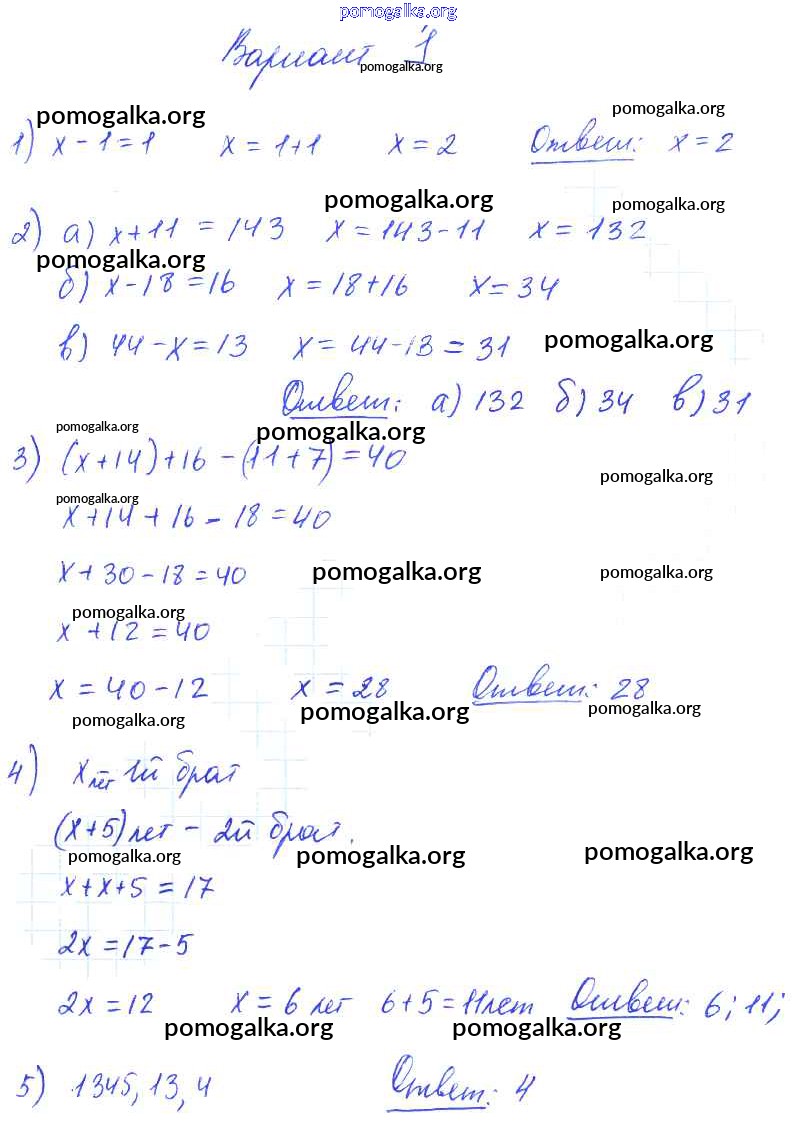 pomogalka.org
Вариант 1
pomogalka.org
pomogalka.org pomogalka.org
1) x - 1 = 1 x = 1+1 x = 2 Ответ: x = 2
pomogalka.org pomogalka.org
2) а) x+11 = 143 x = 143-11 x = 132
pomogalka.org
б) x-18 = 16 x = 18+16 x = 34
в) 44-x = 13 x = 44-13 = 31 pomogalka.org
Ответ: а) 132 б) 34 в) 31
pomogalka.org pomogalka.org
3) (x+14)+16-(11+7)=40
pomogalka.org
pomogalka.org
x+14+16-18=40
x+30-18=40 pomogalka.org pomogalka.org
pomogalka.org
x+12=40
x = 40-12 x = 28 Ответ: 28
pomogalka.org pomogalka.org pomogalka.org
4) x лет 1й брат
(x+5) лет - 2й брат.
pomogalka.org pomogalka.org pomogalka.org
x+x+5=17
2x=17-5
2x=12 x=6 лет 6+5=11лет Ответ: 6; 11;
pomogalka.org pomogalka.org
5) 1345, 13, 4 Ответ: 4